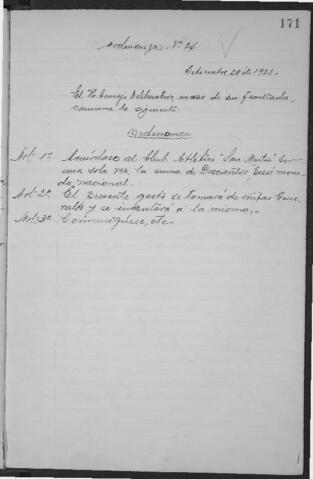 171
Ordenanza Nº 24
Diciembre 20 de 192
El H. Concejo Deliberativo, en uso de sus facultades,
sanciona la siguiente:
Ordenanza
Art. 1º Acuérdase al Club Atlético "San Martin" por
una sola vez, la suma de Doscientos pesos mone-
da nacional.
Art. 2º El presente gasto se tomará de rentas Gene-
rales y se imputará á la misma.-
Art. 3º Comuníquese, etc-